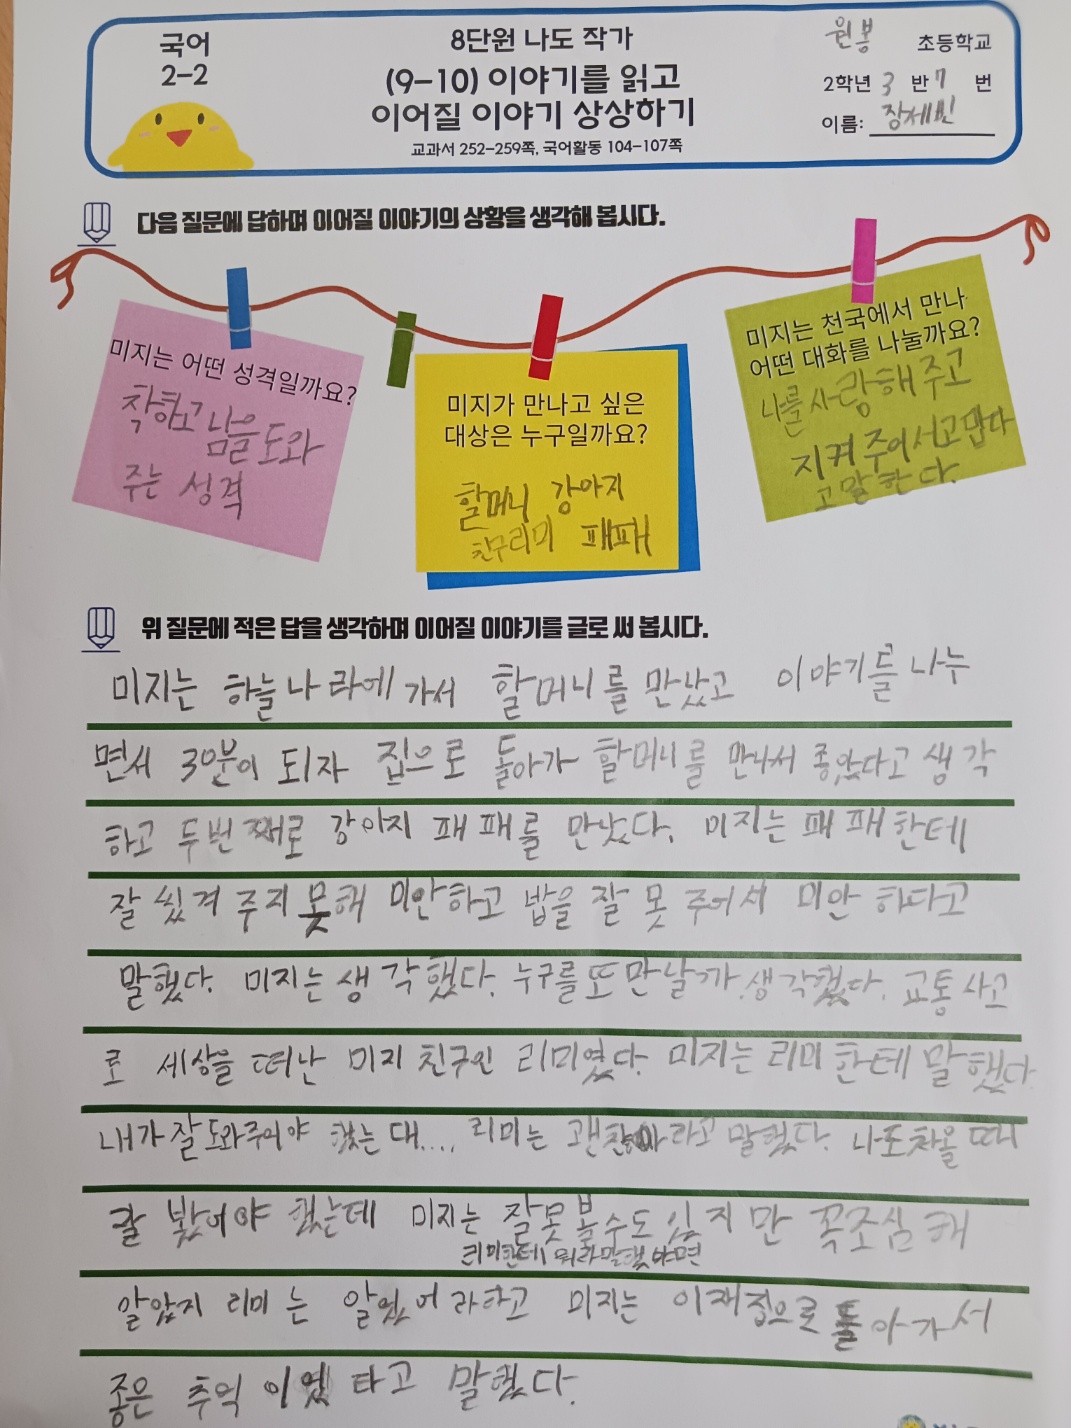 국어
2-2
8단원 나도 작가
(9-10) 이야기를 읽고
이어질 이야기 상상하기
교과서 252-259쪽, 국어활동 104-107쪽
원봉 초등학교
2학년 3 반 7 번
이름: 장세빈
다음 질문에 답하며 이어질 이야기의 상황을 생각해 봅시다.
미지는 어떤 성격일까요?
착하고 남을 도와
주는 성격
미지가 만나고 싶은
대상은 누구일까요?
할머니 강아지
친구리미 패패
미지는 천국에서 만나
어떤 대화를 나눌까요?
나를 사랑해 주고
지켜 주어서 고맙다
고 말한다.
위 질문에 적은 답을 생각하며 이어질 이야기를 글로 써 봅시다.
미지는 하늘나라에 가서 할머니를 만났고 이야기를 나누
면서 30분이 되자 집으로 돌아가 할머니를 만나서 좋았다고 생각
하고 두번째로 강아지 패패를 만났다. 미지는 패패한테
잘 씼겨 주지 못해 미안하고 밥을 잘 못 주어서 미안 하다고
말했다. 미지는 생각했다. 누구를 또 만날까 생각했다. 교통사고
로 세상을 떠난 미지 친구인 리미였다. 미지는 리미한테 말했다
내가 잘 도와주어야 했는 대.... 리미는 괜찮아라고 말했다. 나도 차올 때
잘 봤어야 했는데 미지는 잘못 볼 수도 있지만 꼭 조심해
리미한테 뭐라말했냐면
알았지 리미는 알았어라하고 미지는 이재 집으로 돌아가서
좋은 추억이였다고 말했다.